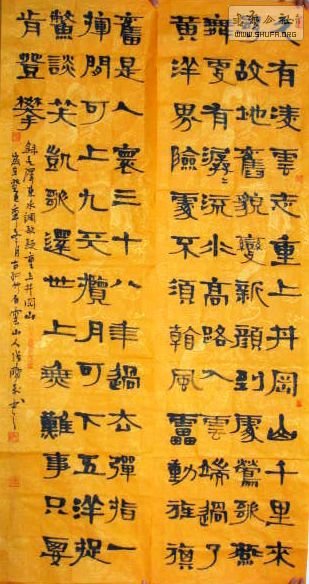 书法公社
WWW.SHUFA.ORG
久有凌雲志重上井岡山千里來
故地舊貌變新顏到處鶯歌燕
舞更有潺々流水高路入雲端過了
黃洋界險處不須翰風雷動旌旗
奮是人寰三十八年過去彈指一
揮間可上九天攬月可下五洋捉
鱉談笑凱歌還世上無難事只要
肯登攀
錄毛澤東水調歌頭重上井岡山
白雲山人